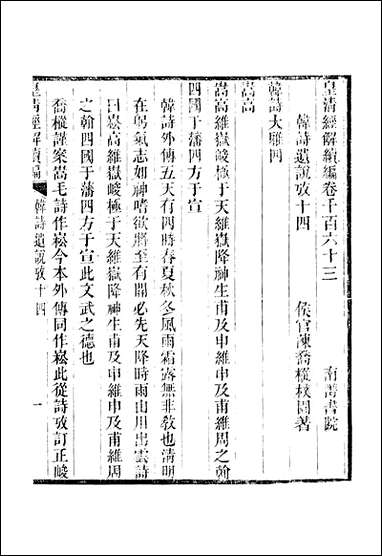 皇清經解續編卷千百六十三
南菁書院
韓詩遺說攷十四
侯官陳喬樅樸園著
韓詩大雅四
嵩高
嵩高維嶽峻極于天維嶽降神生甫及申維周之翰
四國于藩四方于宣
韓詩外傳五天有四時春夏秋冬風雨霜露無非敎也淸明
在躬氣志如神嗜欲將至有開必先天降時雨山川出雲詩
曰嵩高維嶽峻極于天維嶽降神生甫及申維申及甫維周
之翰四國于藩四方于宣此文武之德也
喬樅謹案嵩毛詩作崧今本外傳同作崧此從詩攷訂正峻
皇淸經解續編
韓詩遺說攷十四
一